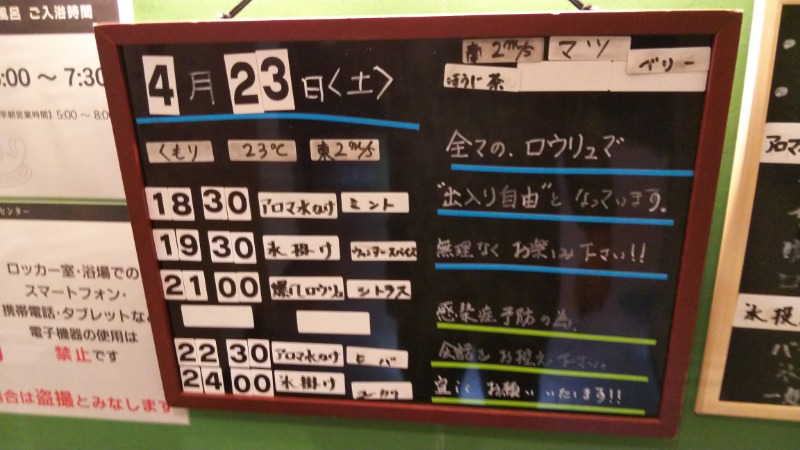 風呂 ご入浴時間
:00 〜 7:30
早朝営業時間】5:00 〜 8:0
センター
ロッカー室・浴場での
スマートフォン・
携帯電話・タブレットな
電子機器の使用は
禁止です
合は盗撮とみなします
4月23日〈土〉
くもり 23℃ 東2m/s
18 30 アロマ水かけ ミント
19 30 氷掛け ウィンタースパイス
21 00 爆風ロウリュ シトラス
22 30 アロマ水かけ
24 00 氷掛け
東2m/s マツ ベリー
ほうじ茶
全ての、ロウリュで
"出入り自由"となっています。
無理なくお楽しみ下さい!!
感染症予防の為、
会話をお控え下さい。
宜しくお願いいたします!!
アロマ
氷投